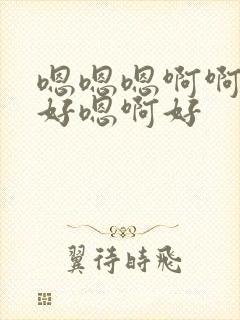 嗯嗯嗯啊啊
好嗯啊好
翼待時飛